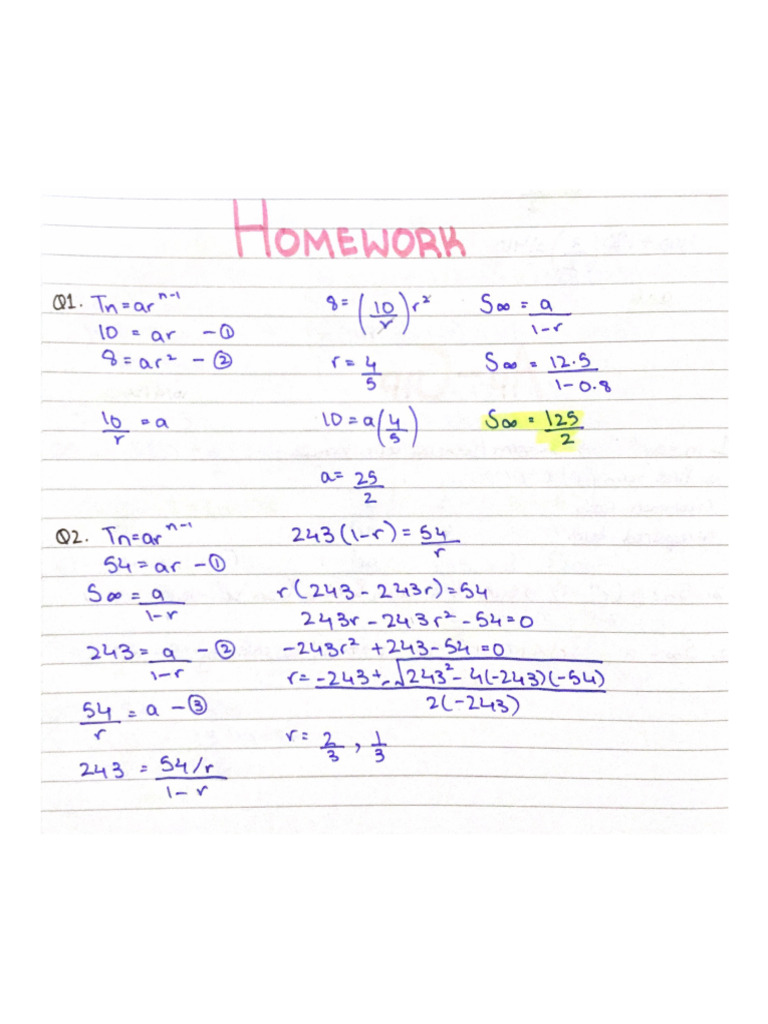 HOMEWORK
Q1. Tn = ar^(n-1)
10 = ar - ①
8 = ar² - ②
10/r = a
8 = (10/r) r²
r = 4/5
10 = a(4/5)
a = 25/2
S∞ = a/(1-r)
S∞ = 12.5/(1-0.8)
S∞ = 125/2
Q2. Tn = ar^(n-1)
54 = ar - ①
S∞ = a/(1-r)
243 = a/(1-r) - ②
54/r = a - ③
243 = (54/r)/(1-r)
243(1-r) = 54/r
r(243 - 243r) = 54
243r - 243r² - 54 = 0
-243r² + 243 - 54 = 0
r = (-243 ± √(243² - 4(-243)(-54)))/(2(-243))
r = 2/3, 1/3